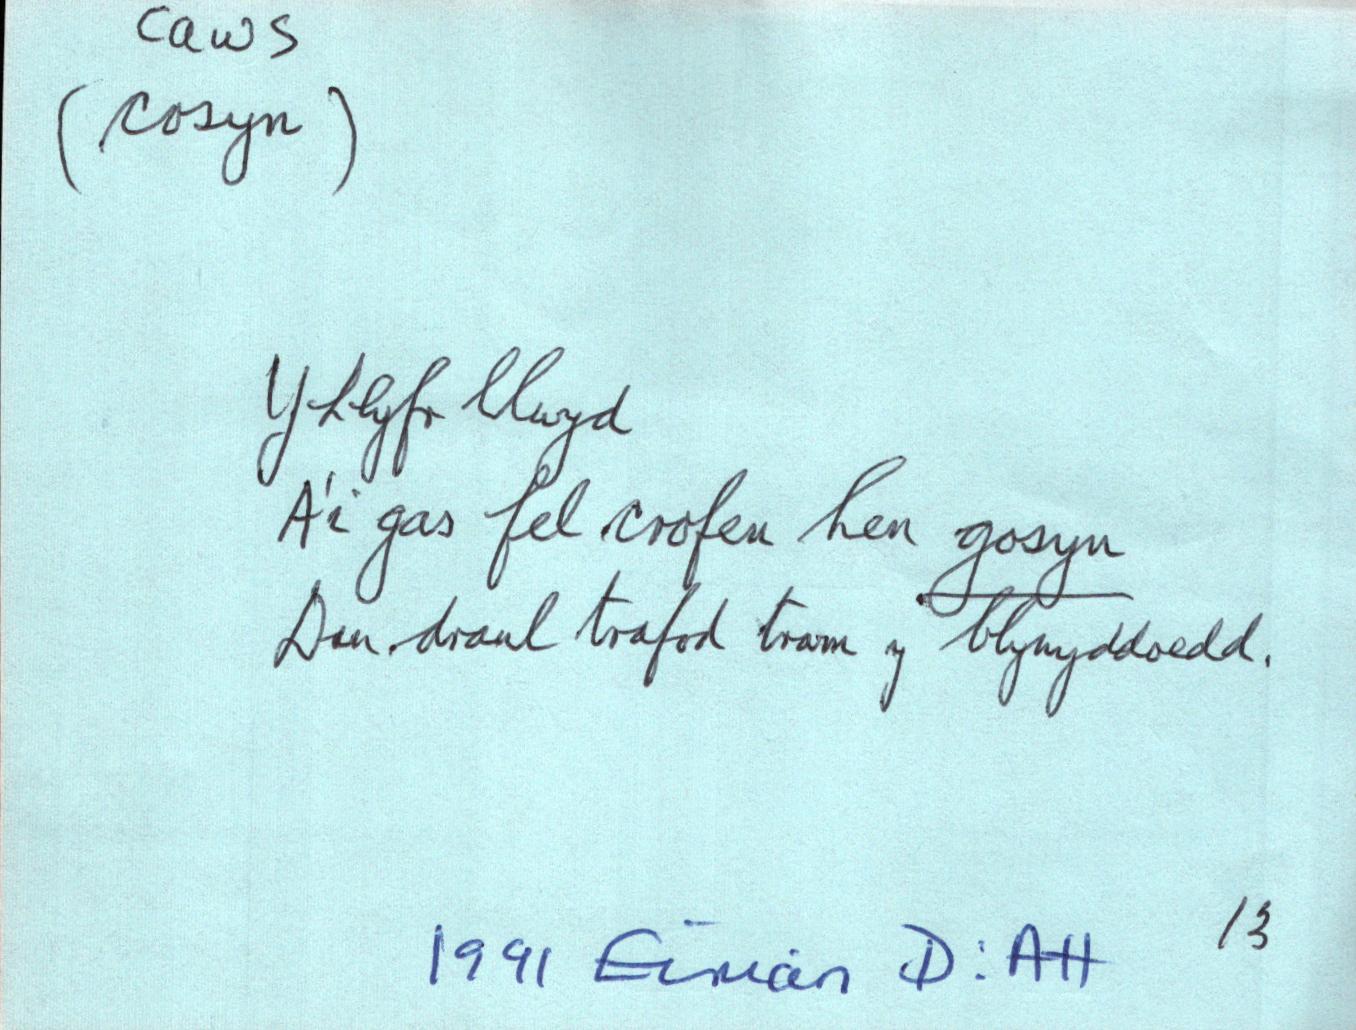 caws
(cosyn)
Y Llyfr llwyd
A'i gas fel crofen hen gosyn
Dan draul trafod tram y blynyddoedd.
13
1991 Eirian D: AH